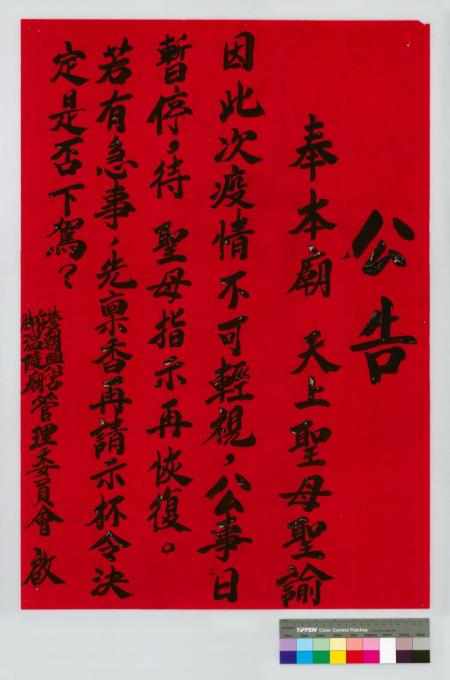 公告
奉本廟 天上聖母聖諭
因此次疫情不可輕視，公事日
暫停，待 聖母指示再恢復。
若有急事，先稟香再請示杯令決
定是否下駕？
管理委員會 啟
TIFFEN Color Control Patches